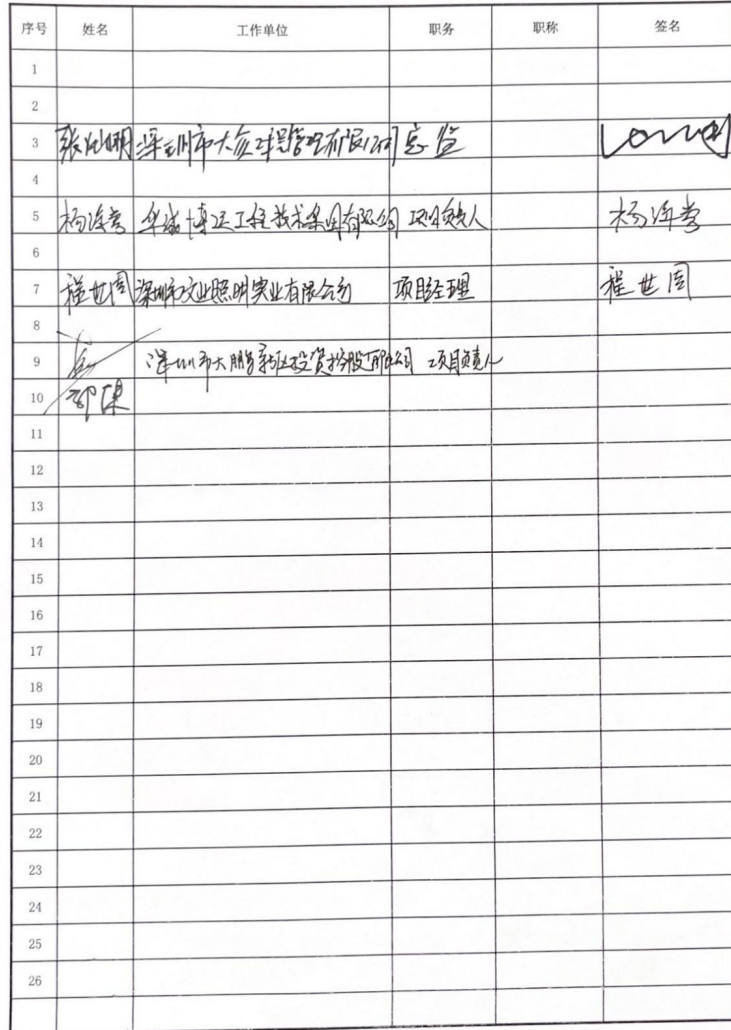 序号 姓名 工作单位 职务 职称 签名
1
2
3 深圳市大 管理有限公司 总监
4
5 杨 华诚博远工程技术集团有限公司 项目负责人 杨
6
7 程世周 深圳市文业照明实业有限公司 项目经理 程世周
8
9 深圳市大鹏新区投资控股有限公司 项目负责人
10
11
12
13
14
15
16
17
18
19
20
21
22
23
24
25
26